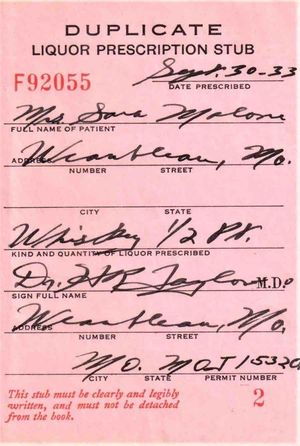 DUPLICATE
LIQUOR PRESCRIPTION STUB
F92055
Sept. 30-33
DATE PRESCRIBED
Mrs. Sara Malone
FULL NAME OF PATIENT
ADDRESS Weaubleau, Mo.
NUMBER STREET
CITY STATE
Whiskey 1/2 Pt.
KIND AND QUANTITY OF LIQUOR PRESCRIBED
Dr. Taylor M.D.
SIGN FULL NAME
ADDRESS Weaubleau, Mo.
NUMBER STREET
Mo.
CITY STATE PERMIT NUMBER
This stub must be clearly and legibly
written, and must not be detached
from the book.
2